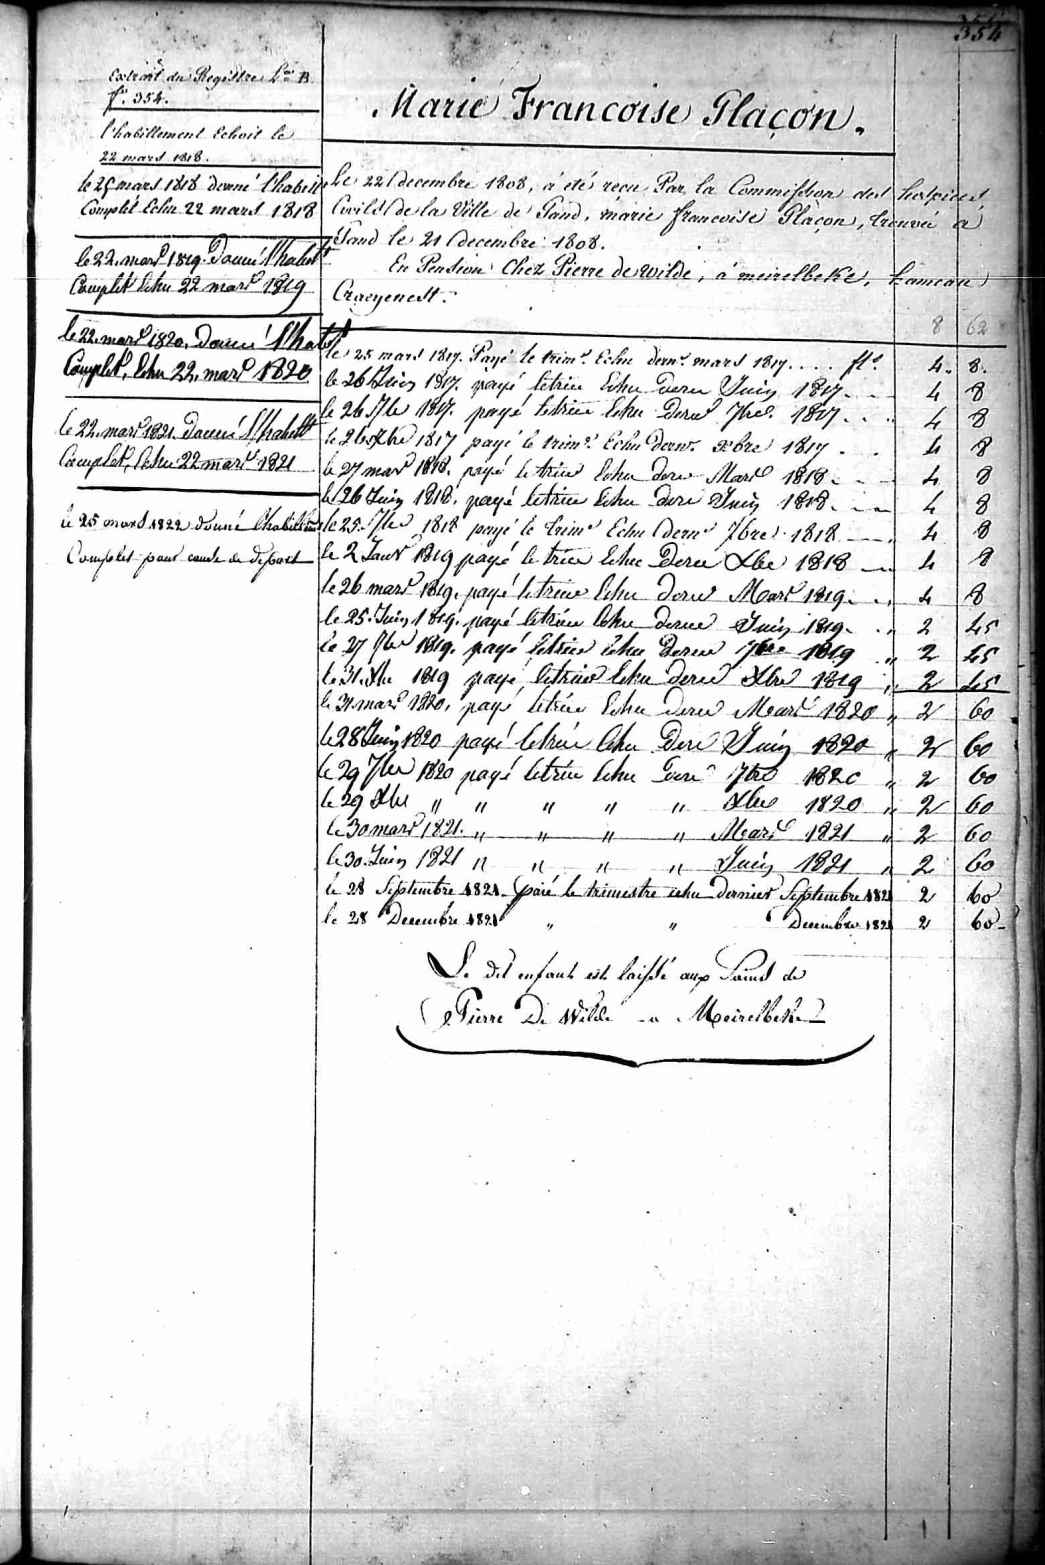 354
Extrait du Registre L.ra B
f.o 354.
l'habillement Echoit le
22 mars 1818.
le 25 mars 1818 donné l'habill
Complèt Echu 22 mars 1818
le 22. mars 1819. Donné l'habilt
Complèt Echu 22 mars 1819
le 22. mars 1820. Donné l'habilt
Complèt. Echu 22. mars 1820
le 22. mars 1821. Donné l'habillt
Complèt, Echu 22 mars 1821
le 25 mars 1822 donné l'habillem
Complet pour cause de départ
Marie Francoise Plaçon.
Le 22 Decembre 1808, à été reçu Par la Commission des hospices
Civils de la Ville de Gand, marie francoise Plaçon, trouvée à
Gand le 21 Decembre 1808.
En Pension Chez Pierre de wilde, à meirelbeke, hameau
Craeyenest.
8 62
le 25 mars 1817. Payé le trim.e Echu dern.r mars 1817. . . . fl.s 4. 8.
le 26 Juin 1817. payé letrim Echu dern Juin 1817. 4 8
le 26 7bre 1817. payé letrim Echu Dern 7bre. 1817 4 8
le 26 xbre 1817 payé le trim.e Echu Dern. xbre 1817 4 8
le 27 mars 1818. payé le trim Echu dern Mars 1818. 4 8
le 26 Juin 1818. payé letrim Echu dern Juin 1818. 4 8
le 25. 7bre 1818 payé le trim.e Echu Dern.r 7bre 1818 4 8
le 2 Janv 1819 payé le trim Echu Dern Xbre 1818 4 8
le 26 mars 1819. payé letrim Echu dern Mars 1819. 4 8
le 25. Juin 1819. payé letrim Echu dern Juin 1819. 2 45
le 27 7bre 1819. payé letrim Echu Dern 7bre 1819 " 2 45
le 31. Xbre 1819 payé letrim Echu dern Xbre 1819 " 2 45
le 31. mars 1820, payé letrim Echu dern Mars 1820 " 2 60
le 28 Juin 1820 payé letrim Echu Dern Juin 1820 " 2 60
le 29 7bre 1820 payé letrim Echu Dern 7bre 1820 " 2 60
le 29 Xbre " " " " " Xbre 1820 " 2 60
le 30 mars 1821. " " " " Mars 1821 " 2 60
le 30. Juin 1821 " " " " Juin 1821 " 2 60
le 28 Septembre 1821. païé le trimestre echu Dernier Septembre 1821 2 60
le 28 Decembre 1821 " " Decembre 1821 2 60
Le dit enfant est laissé aux Soins de
Pierre De Wilde a Meirelbeke